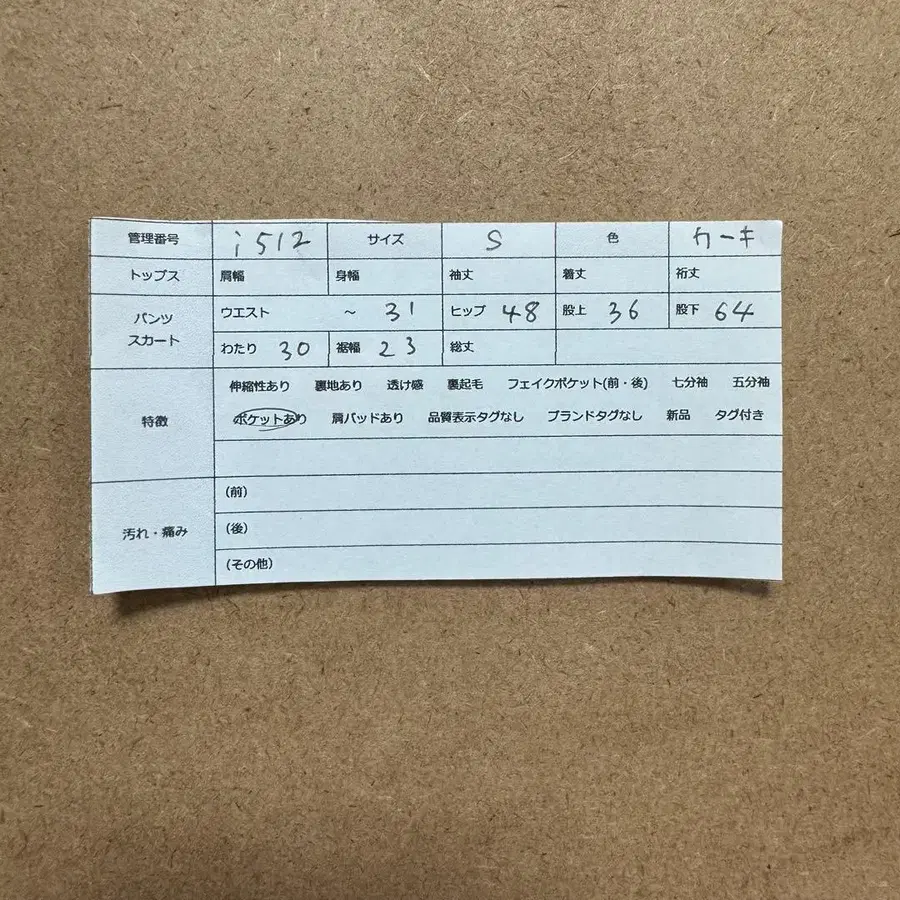 管理番号 i512 サイズ S 色 カーキ
トップス 肩幅 身幅 袖丈 着丈 裄丈
パンツ スカート ウエスト ～ 31 ヒップ 48 股上 36 股下 64
わたり 30 裾幅 23 総丈
特徴 伸縮性あり 裏地あり 透け感 裏起毛 フェイクポケット(前・後) 七分袖 五分袖
ポケットあり 肩パッドあり 品質表示タグなし ブランドタグなし 新品 タグ付き
汚れ・痛み (前)
(後)
(その他)